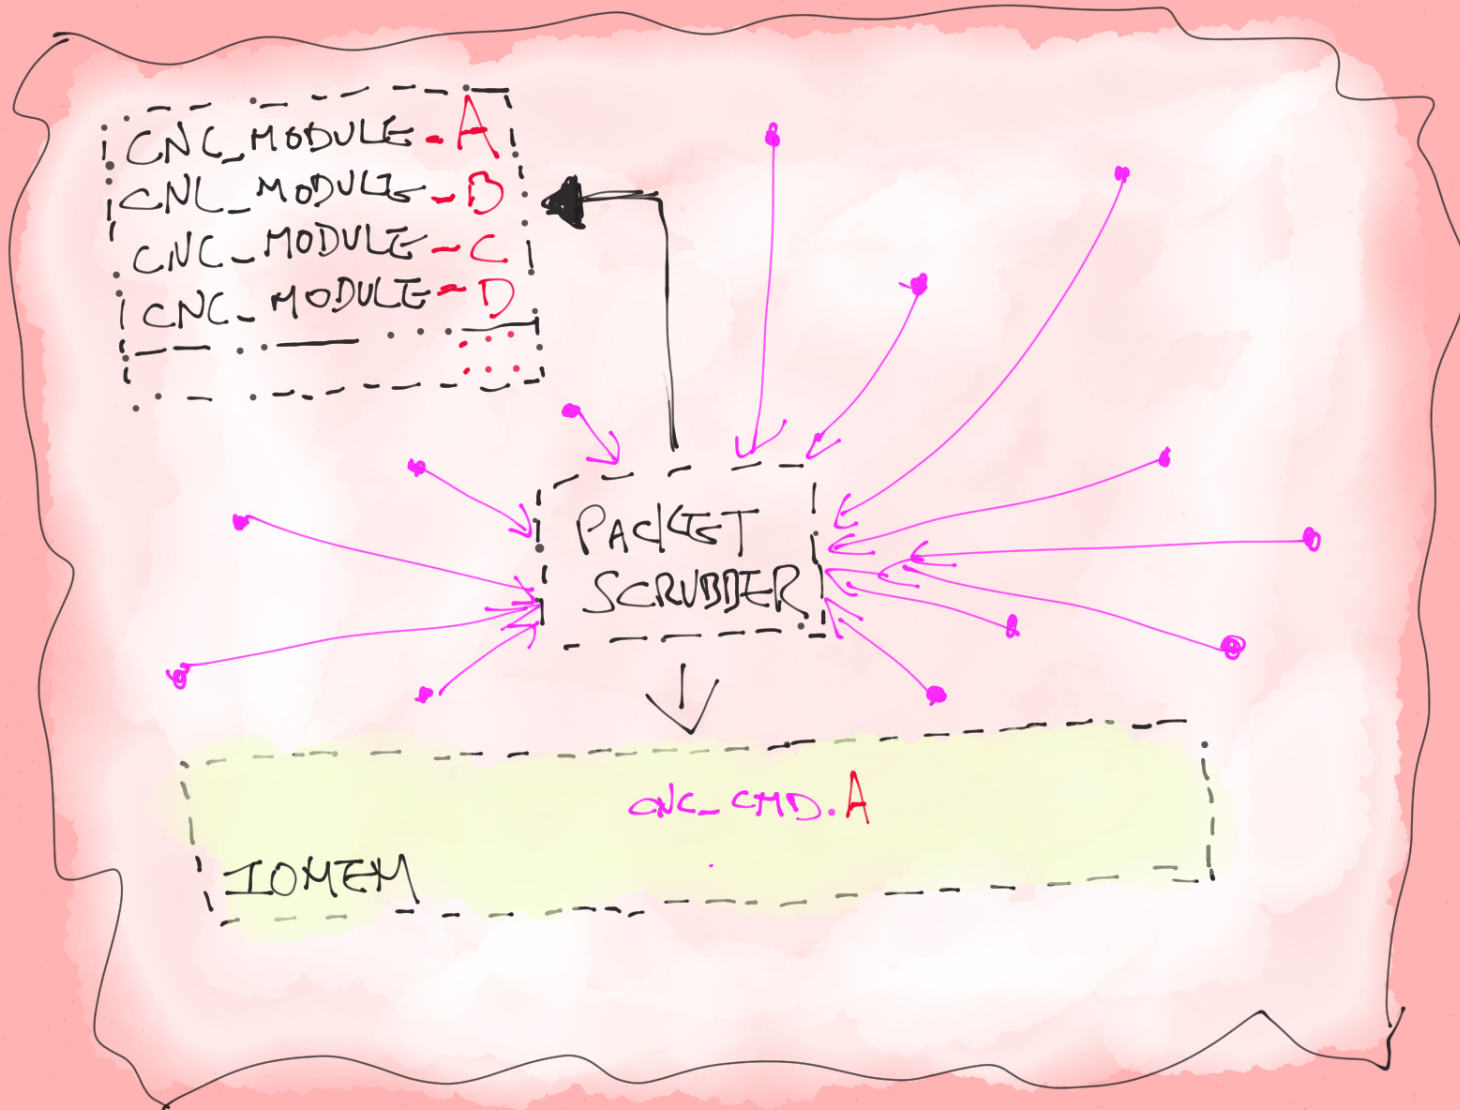 CNC_MODULE-A
CNC_MODULE-B
CNC_MODULE-C
CNC_MODULE-D
PACKET
SCRUBBER
CNC_CMD.A
IOMEM